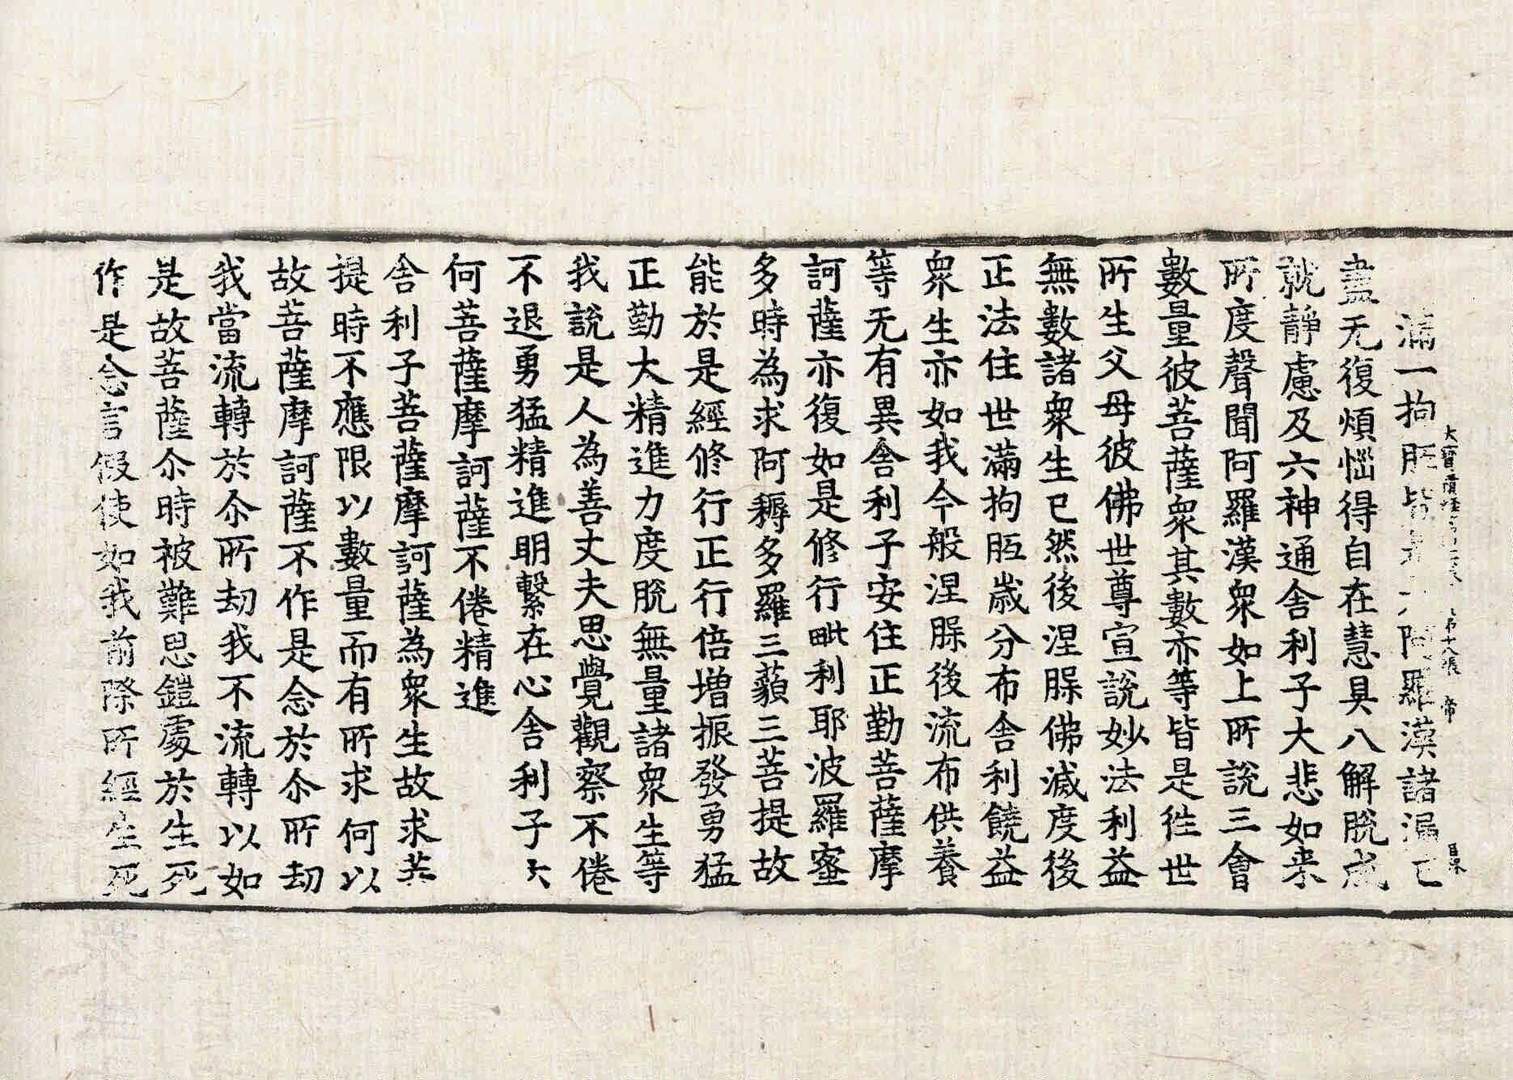 滿一拘胝皆是大阿羅漢諸漏已
大寶積經 第十八張 帝
盡无復煩惱得自在慧具八解脫成
就靜慮及六神通舍利子大悲如来
所度聲聞阿羅漢衆如上所說三會
數量彼菩薩衆其數亦等皆是徃世
所生父母彼佛世尊宣說妙法利益
無數諸衆生已然後涅𦘺佛滅度後
正法住世滿拘胝歳分布舍利饒益
衆生亦如我今般涅𦘺後流布供養
等无有異舍利子安住正勤菩薩摩
訶薩亦復如是修行毗利耶波羅蜜
多時為求阿耨多羅三藐三菩提故
能於是經修行正行倍增振發勇猛
正勤大精進力度脫無量諸衆生等
我說是人為善丈夫思覺觀察不倦
不退勇猛精進明繫在心舍利子云
何菩薩摩訶薩不倦精進
舍利子菩薩摩訶薩為衆生故求菩
提時不應限以數量而有所求何以
故菩薩摩訶薩不作是念於尒所劫
我當流轉於尒所劫我不流轉以如
是故菩薩尒時被難思鎧處於生死
作是念言假使如我前際所經生死